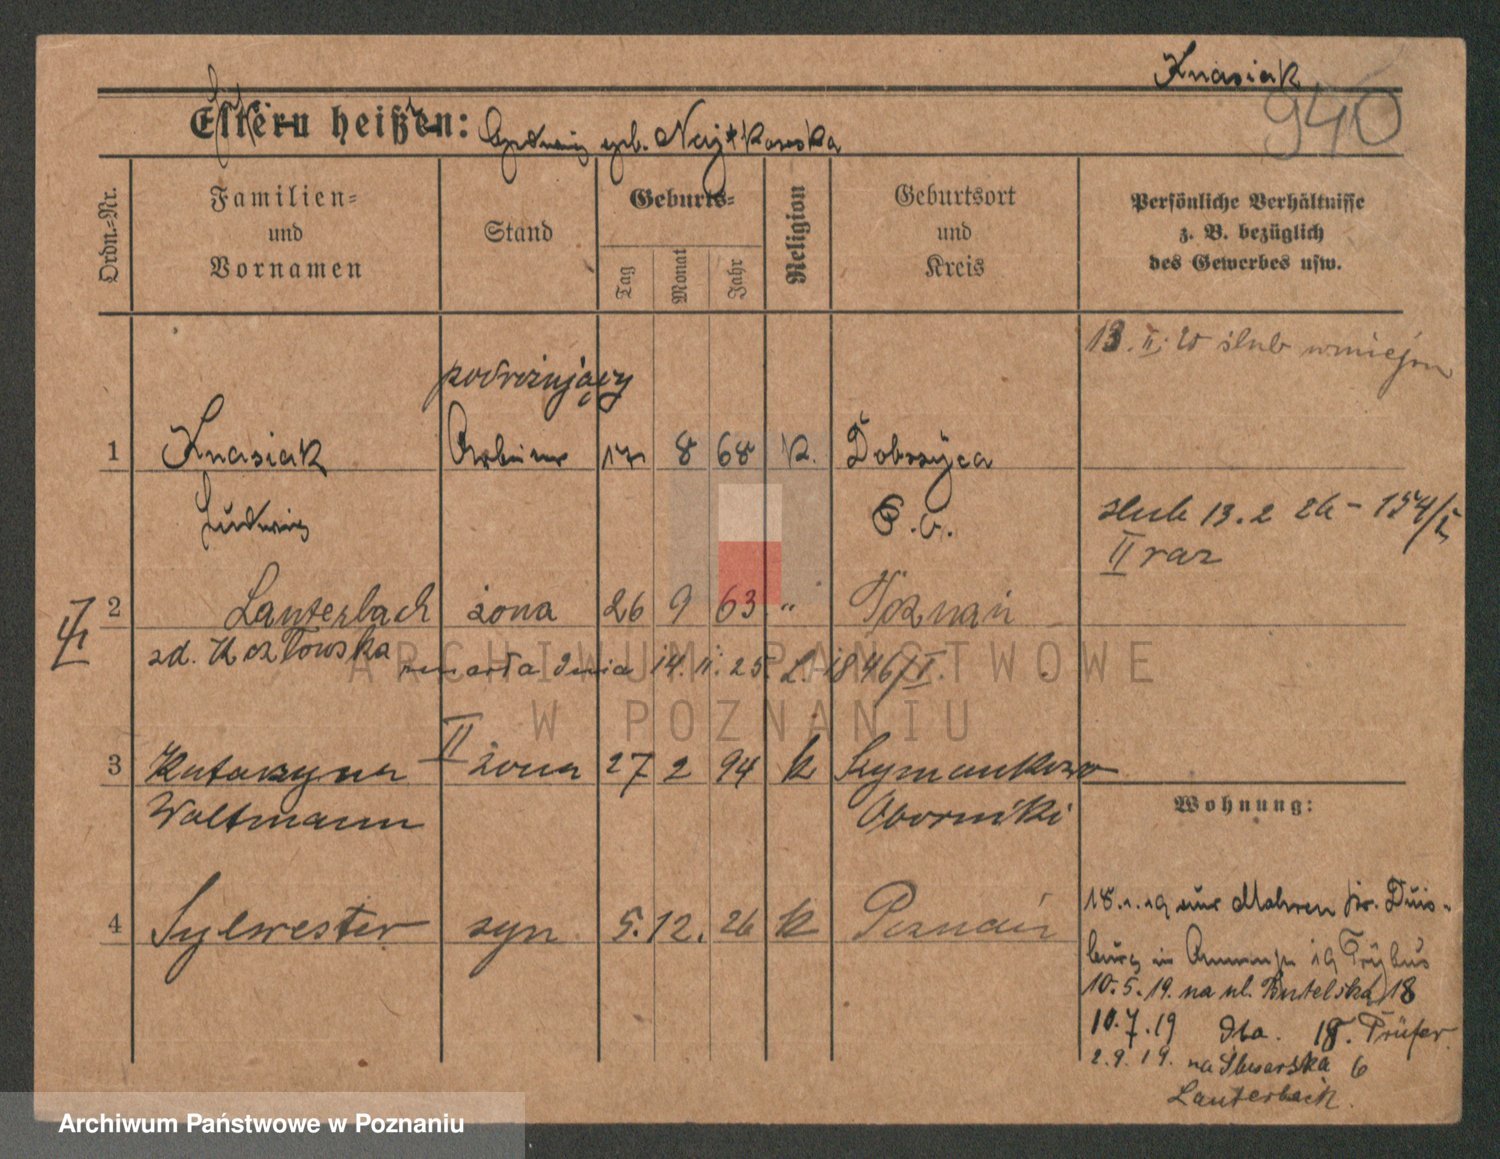 Knasiak
940
Eltern heißen: geb.
Ordn.-Nr.
Familien- und Vornamen
Stand
Geburts-
Tag
Monat
Jahr
Religion
Geburtsort und Kreis
Persönliche Verhältnisse
z. B. bezüglich
des Gewerbes usw.
13. II. 20 ślub
podróżujący
1 Knasiak 17 8 68 K. Dobrzyca
Ludwig
ślub 13.2 26 - 154/I
II raz
2 Lauterbach żona 26 9 63 " Poznań
zd. Kozłowska
umarła dnia 14. II. 25. L. 1846/II.
3 Katarzyna II żona 27 2 94 k Szymankowo
Woltmann Oborniki
Wohnung:
4 Sylwester syn 5. 12. 26 k Poznań
18.1.19 aus Mohren Kr. Duis-
burg in 19
10.5.19. na ul. Butelska 18
10.7.19 dto. 18. Prüfer
2.9.19. na Ślusarska 6
Lauterbach.
ARCHIWUM PAŃSTWOWE
W POZNANIU
Archiwum Państwowe w Poznaniu